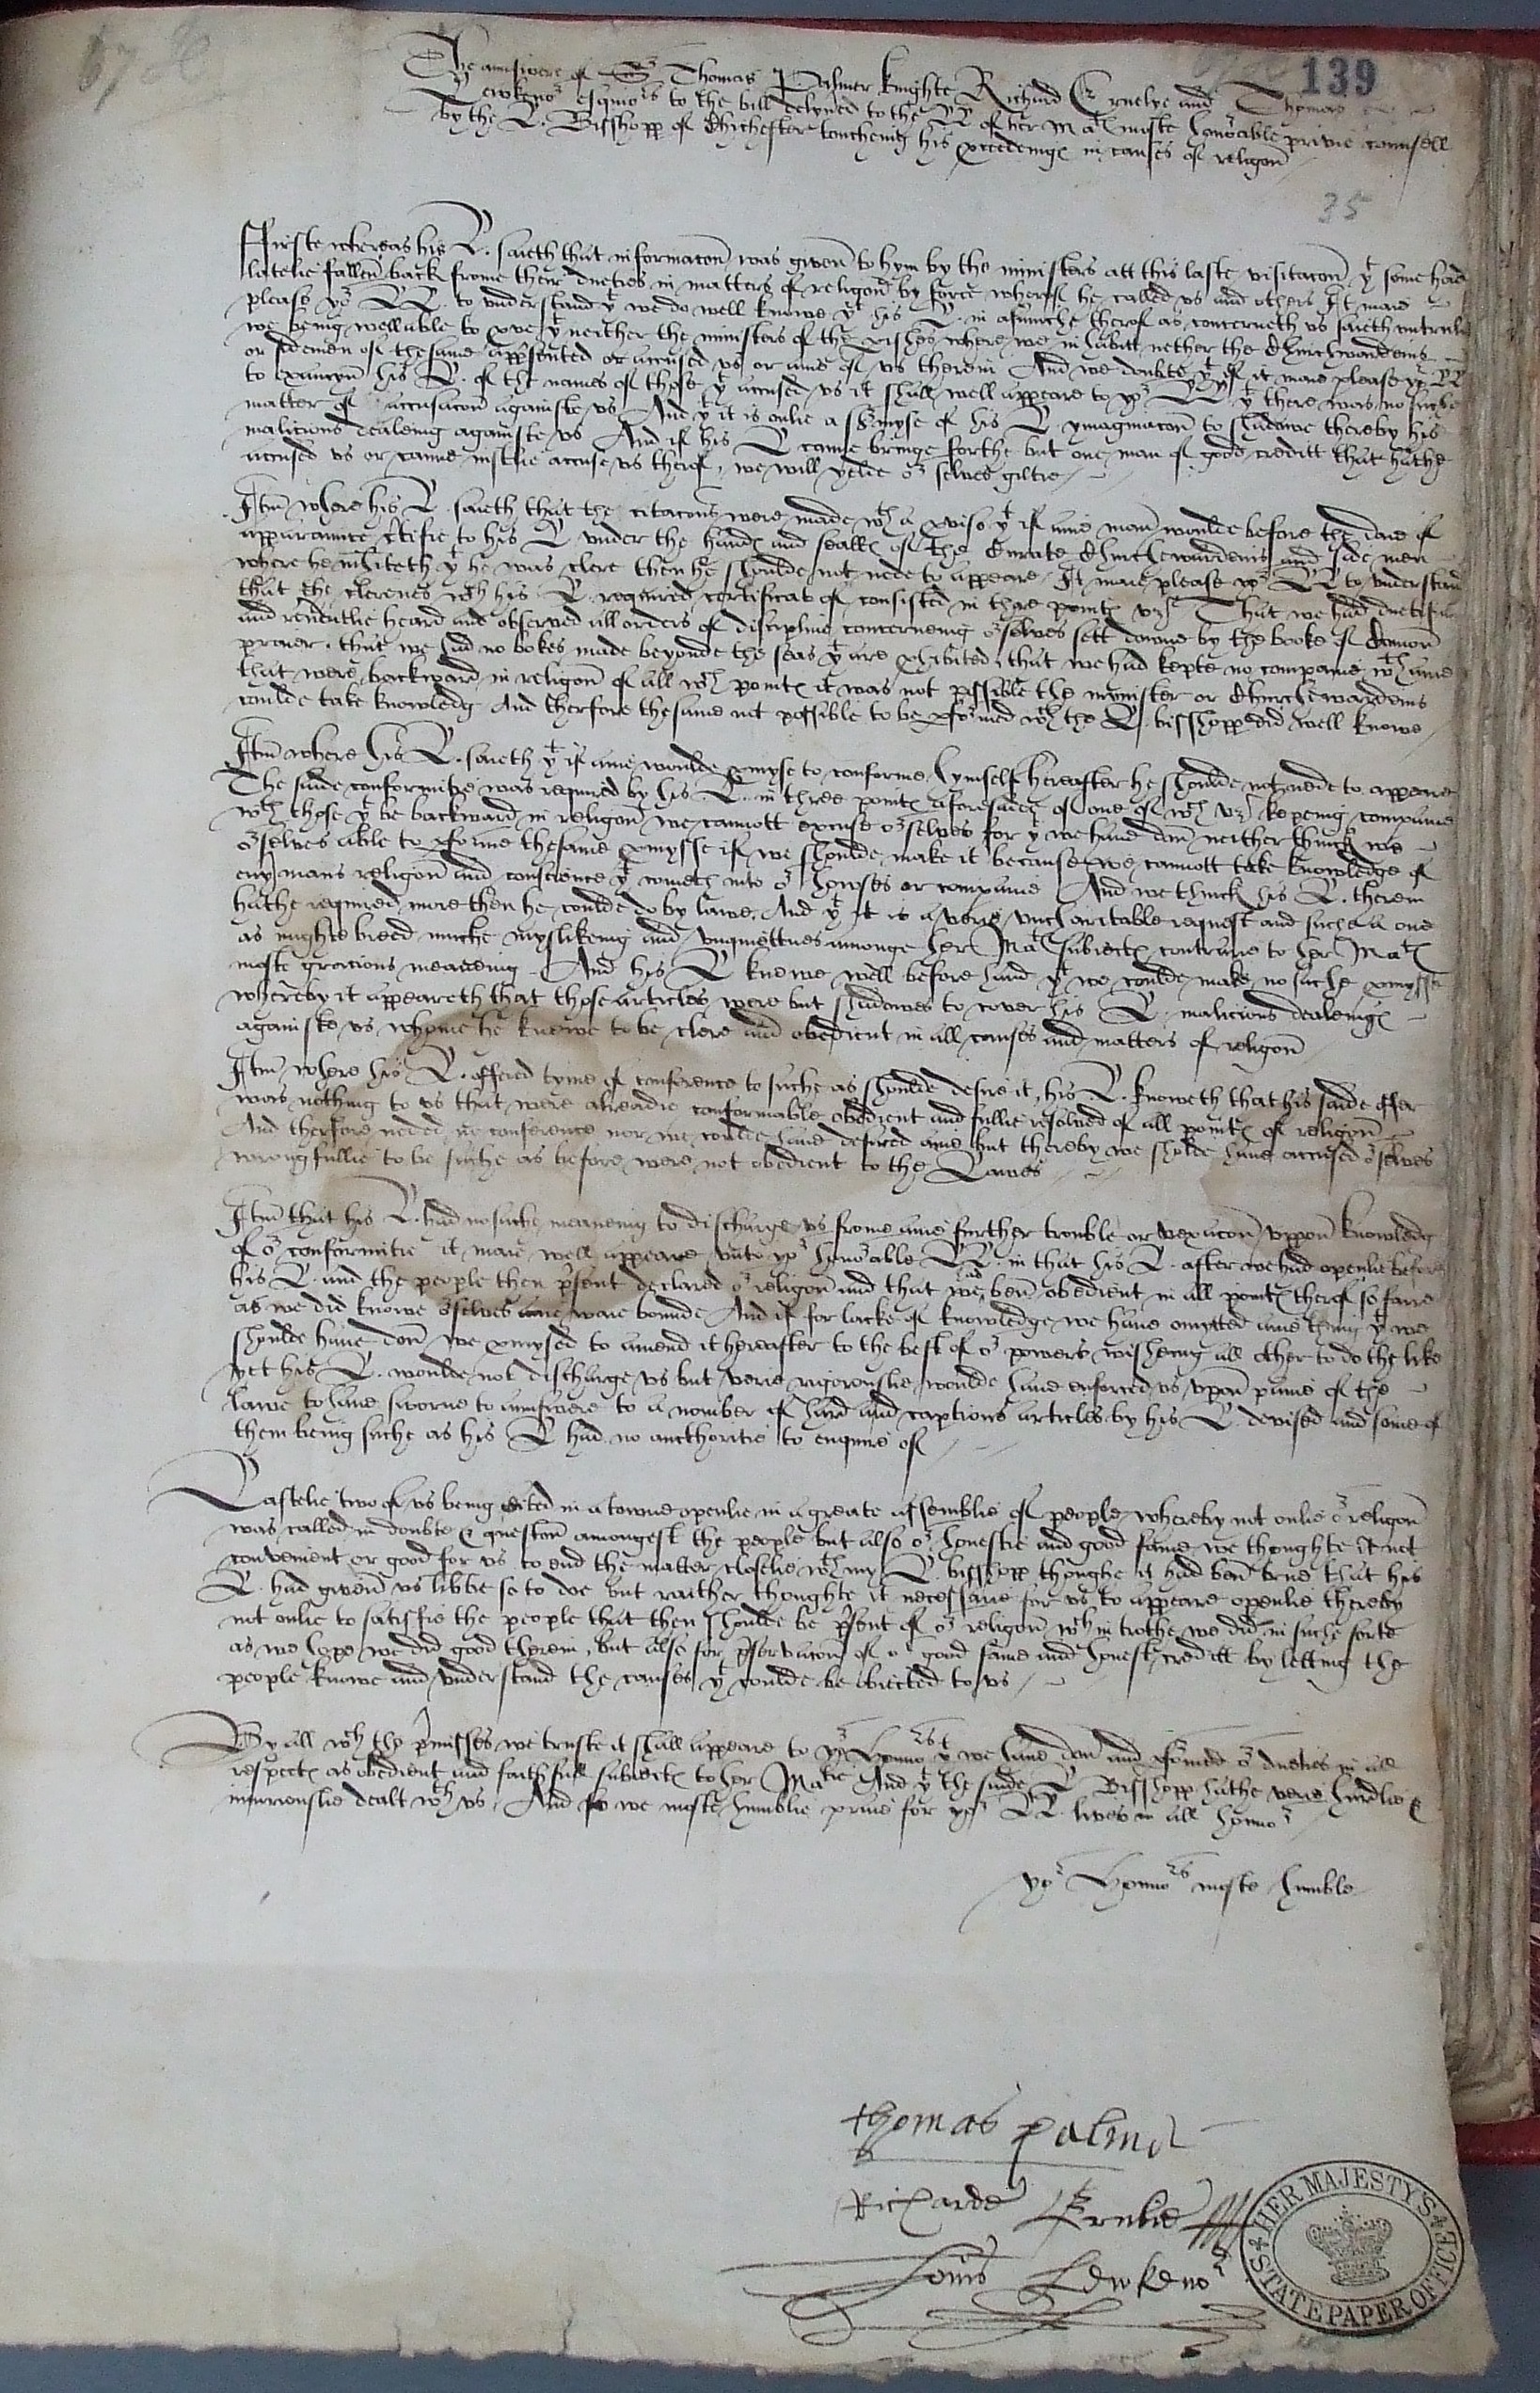 67
139
The aunswere of Sr Thomas Palmer knighte Richard Ernelye and Thomas
Lewkenor esquiors to the bill delyvred to the LL of her Mats moste honorable privie counsell
by the L. Bisshopp of Chichester touchenig his procedenigs in causes of religon
35
Firste whereas his L. saieth that informacon was given to hym by the ministers att this laste visitacon yt some had
latelie fallen back frome their dueties in matters of religon by force wherof he called us and others It maie
please yor LL. to understand yt we do well knowe yt his L. in asmuche therof as concerneth us saieth untrulie
we being well able to prove yt neither the ministers of the parishes where we inhabitt, nether the Churchwardenis
or sidemen of the same appresented or accused us or anie of us therein And we doubte not yf it maie please yor LL
to examyn his L. of the names of those yt accused us it shall well appeare to yor LL. yt there was no suche
matter of accusacon againste us And yt it is onlie a surmyse of his L ymaginacon to shadowe thereby his
malicious dealenig againste us And if his L canne bringe forthe but one man of good creditt that hathe
accused us or canne iustlie accuse us therof, we will yelde or selves giltie
Itm where his L. saieth that the citacons were made wth a proviso yt if anie man woulde before the daie of
appearannce certifie to his L under the hands and sealls of the Curate Churchewardenis and side men
where he inhabiteth yt he was clere then he shoulde not nede to appeare. It maie please yor LL to understand
that the clerenes wch his L. required certificat of consisted in three points vzt That we had duetifullie
and reuerentlie heard and observed all orders of discipline concernenig orselves sett downe by the booke of Common
praier. that we had no bokes made beyonde the seas yt are prohibited, that we had kepte no companie wth anie
that were backward in religon of all wch points it was not possible the minister or Churchewardenis
coulde take knowledg And therfore the same not possible to be performed wch the L. bisshopp did well knowe
Itm where his L. saieth yt if anie woulde promyse to conforme hymself hereafter he shoulde not nede to appeare
The saide conformitie was required by his L. in three points aforesaide of one of wch vzt kepenig companie
wth those yt be backward in religon we cannott excuse orselves for yt we have don neither think we
orselves able to performe the same promysse if we shoulde make it because we cannott take knowledge of
eny mans religon and conscience yt cometh into or howses or companie And we think his L. therein
hathe required more then he coulde do by lawe. And yt it is a verie uncharitable request and suche a one
as mighte breed muche myslikenig and unquiettnes amonge her Mats subiects contrarie to her Mats
moste gracious meanenig. And his L knewe well before hand yt we coulde make no suche promysse
whereby it appeareth that those articles were but shadowes to cover his L. malicious dealenigs
againste us whome he knewe to be clere and obedient in all causes and matters of religon
Itm where his L. offered tyme of conference to suche as shoulde desire it, his L. knoweth that his saide offer
was nothing to us that were alreadie conformable obedient and fullie resolved of all points of religon
And therfore neded no conference nor we coulde have desired anie but thereby we sholde have accused orselves
wrongfullie to be suche as before were not obedient to the Lawes
Itm that his L. had no suche meanenig to discharge us frome anie further trouble or vexacon uppon knowledg
of or conformitie it maie well appeare unto yor honorable LL. in that his L. after we had openlie before
his L. and the people then present declared or religon and that we had ben obedient in all points therof so farre
as we did knowe orselves ware bounde And if for lacke of knowledge we have omytted anie thing yt we
shoulde have don we promysed to amend it hereafter to the best of or powers wishenig all other to do the like
yet his L. woulde not discharge us but verie rigorouslie woulde have enforced us upon paine of the
lawe to have sworne to aunswere to a nomber of hard and captious articles by his L. devised and some of
them being suche as his L had no aucthoritie to enquire of
Lastelie two of us being cited in a towne openlie in a greate assemblie of people whereby not onlie or religon
was called in doubte & queston amongest the people but also or honestie and good fame we thoughte it not
convenient or good for us to end the matter closelie wth my L. bisshopp thoughe it had ben true that his
L. had given us libtie so to doe but raither thoughte it necessarie for us to appeare openlie thereby
not onlie to satisfie the people that then shoulde be present of or religon wch in trothe we did in suche sorte
as we hope we did good therein, but also for preservacon of or good fame and honest creditt by letting the
people knowe and understand the causes yt coulde be obiected to us
By all wch the premisses we truste it shall appeare to yor honnors yt we have don and performed or dueties in all
respects as obedient and faithfull subiects to her Matie And yt the saide L Bisshopp hathe verie hardlie &
iniuriouslie dealt wth us. And so we moste humblie praie for yor LL. lives in all honnor
yor honnors moste humble
thomas palmer
Richarde Ernelie
Thomas Lewkenor
HER MAJESTY'S STATE PAPER OFFICE